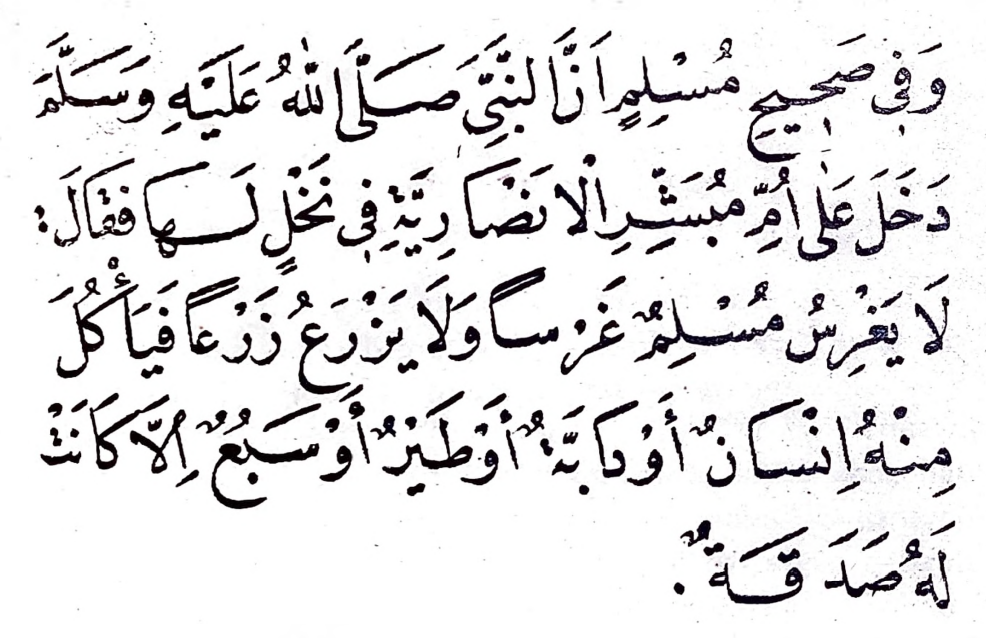 وَفِي صَحِيحِ مُسْلِمٍ اَنَّ النَّبِيَّ صَلَّى اللّٰهُ عَلَيْهِ وَسَلَّمَ
دَخَلَ عَلٰى اُمِّ مُبَشِّرِ الْاَنْصَارِيَّةِ فِي نَخْلٍ لَهَا فَقَالَ:
لَا يَغْرِسُ مُسْلِمٌ غَرْساً وَلَا يَزْرَعُ زَرْعاً فَيَأْكُلَ
مِنْهُ اِنْسَانٌ أَوْ دَابَّةٌ أَوْ طَيْرٌ أَوْ سَبُعٌ اِلَّا كَانَتْ
لَهُ صَدَقَةٌ.